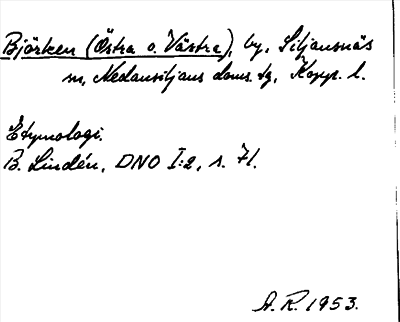 Björken (Östra o. Västra), by, Siljansnäs
sn, Nedansiljans doms. tg, Kopp. l.
Etymologi.
B. Lindén, DNO I:2, s. 71.
A. R. 1953.